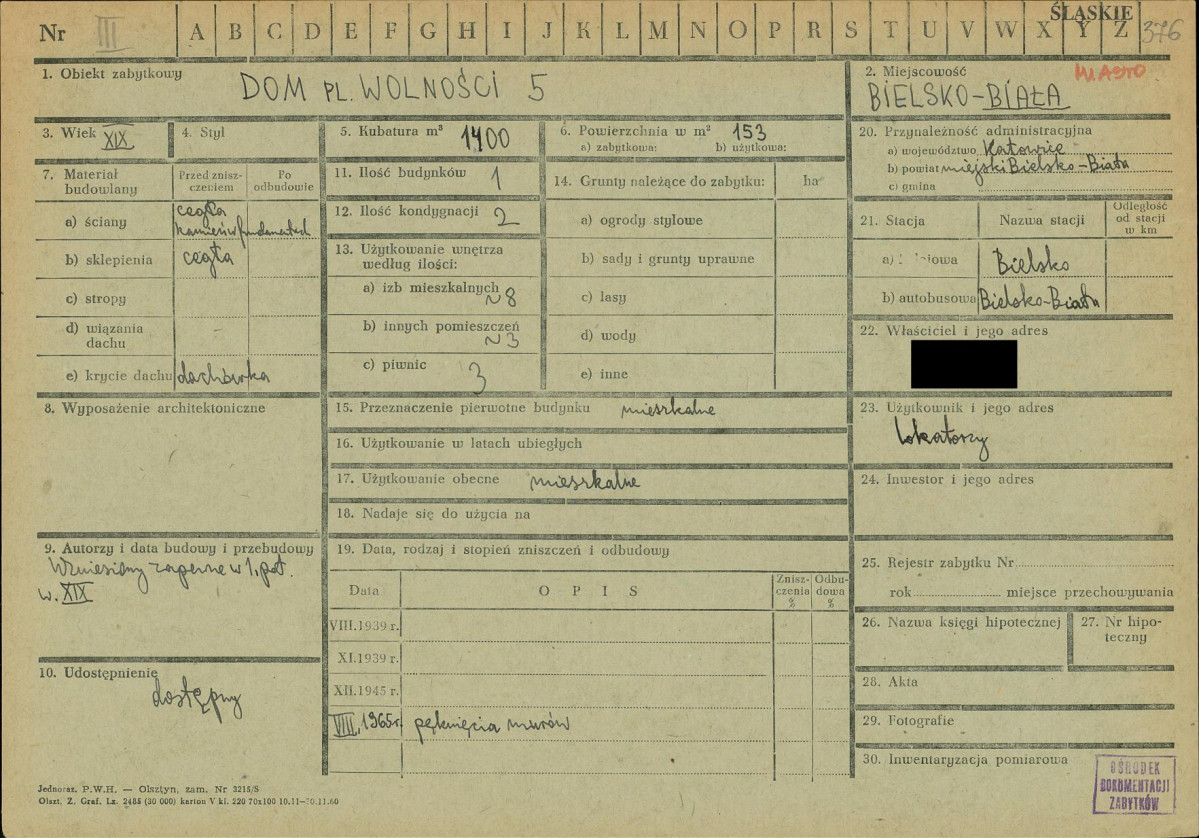 Nr III A B C D E F G H I J K L M N O P R S T U V W X Y Z ŚLĄSKIE 376
1. Obiekt zabytkowy
DOM PL. WOLNOŚCI 5
2. Miejscowość MIASTO
BIELSKO-BIAŁA
3. Wiek XIX
4. Styl
5. Kubatura m³ 1400
6. Powierzchnia w m² 153
a) zabytkowa: b) użytkowa:
7. Materiał budowlany
Przed zniszczeniem
Po odbudowie
a) ściany cegła
kamień w fundamentach
b) sklepienia cegła
c) stropy
d) wiązania dachu
e) krycie dachu dachówka
8. Wyposażenie architektoniczne
9. Autorzy i data budowy i przebudowy
Wzniesiony zapewne w 1. poł.
w. XIX
10. Udostępnienie
dostępny
11. Ilość budynków 1
12. Ilość kondygnacji 2
13. Użytkowanie wnętrza
według ilości:
a) izb mieszkalnych
~8
b) innych pomieszczeń
~3
c) piwnic 3
14. Grunty należące do zabytku: ha
a) ogrody stylowe
b) sady i grunty uprawne
c) lasy
d) wody
e) inne
15. Przeznaczenie pierwotne budynku mieszkalne
16. Użytkowanie w latach ubiegłych
17. Użytkowanie obecne mieszkalne
18. Nadaje się do użycia na
19. Data, rodzaj i stopień zniszczeń i odbudowy
Data OPIS Zniszczenia % Odbudowa %
VIII.1939 r.
XI.1939 r.
XII.1945 r.
VIII.1965r. pęknięcia murów
20. Przynależność administracyjna
a) województwo Katowice
b) powiat miejski Bielsko-Biała
c) gmina
21. Stacja Nazwa stacji Odległość od stacji w km
a) Bielsko
b) autobusowa Bielsko-Biała
22. Właściciel i jego adres
23. Użytkownik i jego adres
lokatorzy
24. Inwestor i jego adres
25. Rejestr zabytku Nr
rok miejsce przechowywania
26. Nazwa księgi hipotecznej
27. Nr hipoteczny
28. Akta
29. Fotografie
30. Inwentaryzacja pomiarowa
OŚRODEK
DOKUMENTACJI
ZABYTKÓW
Jednoraz. P.W.H. — Olsztyn, zam. Nr 3215/S
Olszt. Z. Graf. Lz. 2485 (30 000) karton V kl. 220 70x100 10.11—30.11.60